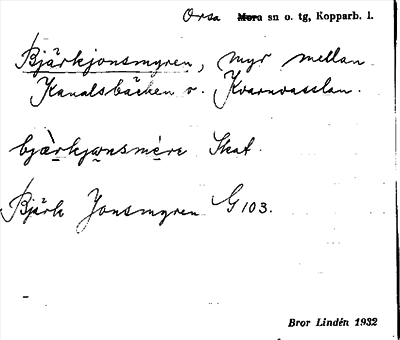 Orsa ~~Mora~~ sn o. tg, Kopparb. l.
Bjärkjonsmyren, myr mellan
Kanalsbäcken o. Kvarnvasslan.
bjæ̀rkjọnsmẹ̀rẹ Skat.
Bjärk Jonsmyren G 103.
Bror Lindén 1932